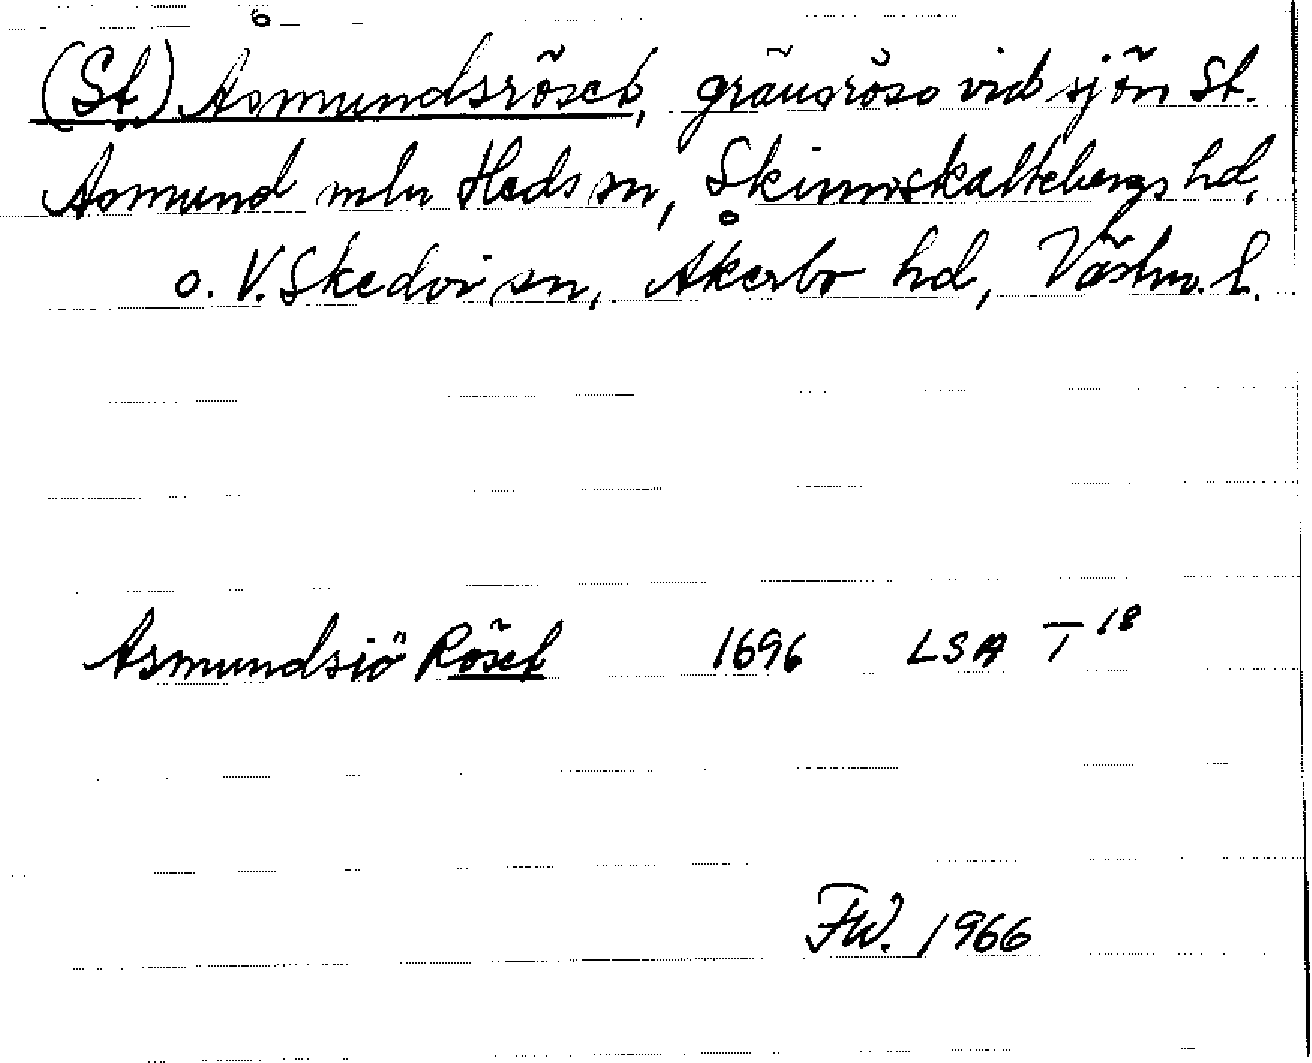 (St.) Åsmundsröset, gränsröse vid sjön St.
Åsmund mln Heds sn, Skinnskattebergs hd,
o. V. Skedvi sn, Åkerbo hd, Västm. l.
Asmundsiö Röset 1696 LSA T 18
1
FW. 1966